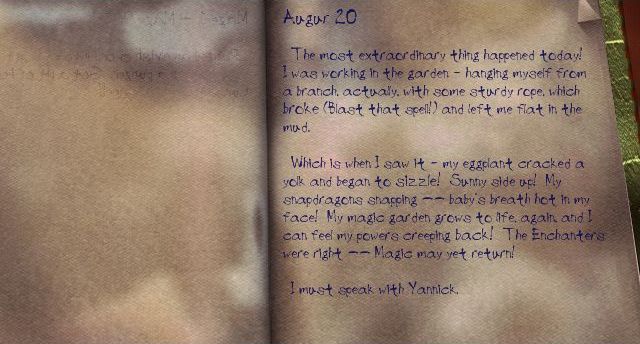 Augur 20
The most extraordinary thing happened today!
I was working in the garden - hanging myself from
a branch, actually, with some sturdy rope, which
broke (Blast that spell!) and left me flat in the
mud.
Which is when I saw it - my eggplant cracked a
yolk and began to sizzle! Sunny side up! My
snapdragons snapping -- baby's breath hot in my
face! My magic garden grows to life, again, and I
can feel my powers creeping back! The Enchanters
were right -- Magic may yet return!
I must speak with Yannick.